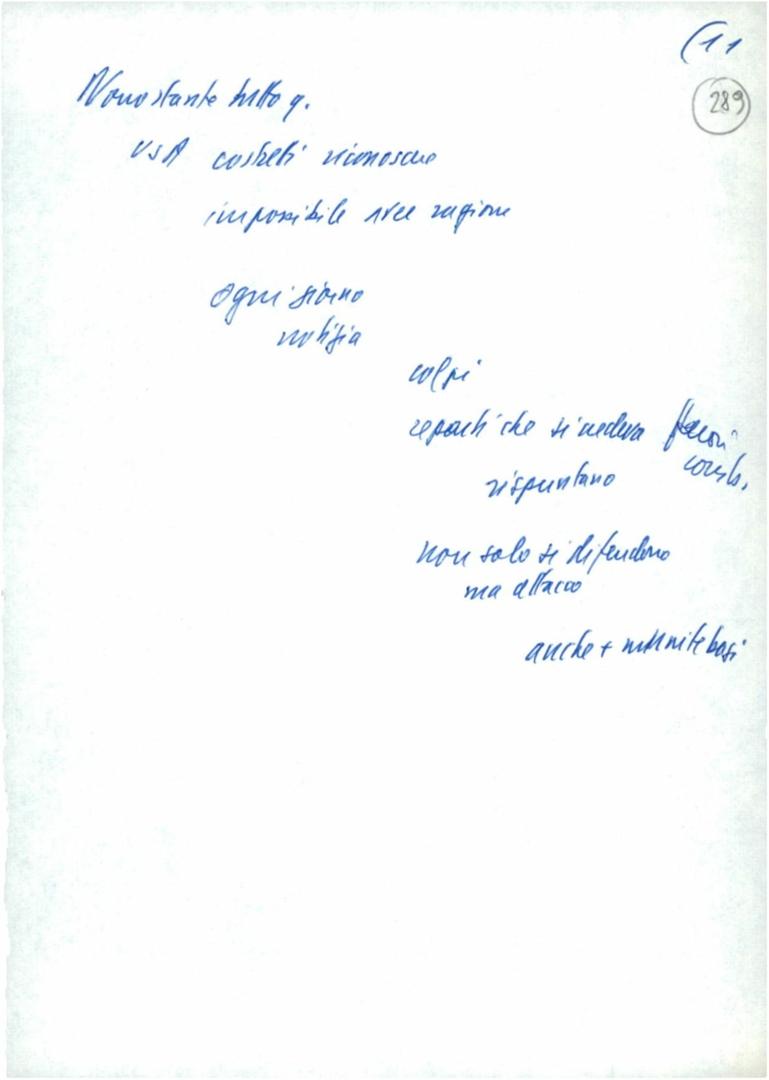 (11
289
Nonostante tutto q.
USA costretti riconoscere
impossibile aver ragione
ogni giorno
notizia
colpi
reparti che si vedeva fuori
comb.
rispuntano
non solo si difendono
ma attacco
anche + munite basi